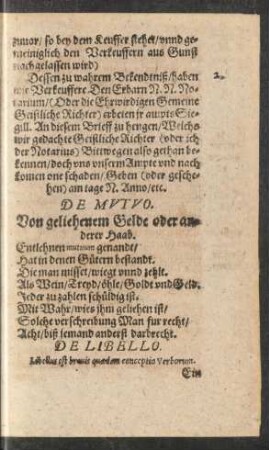 zuuor/ so bey dem Keuffer stehet/ vnnd ge-
meiniglich den Verkeuffern aus Gunst
nachgelassen wird)
Dessen zu wahrem Bekendtniß/ haben 2.
wir Verkeuffere Den Erbarn N. N. No-
tarium/ (Oder die Ehrwirdigen Gemeine
Geistliche Richter) erbeten jr ampts Sie-
gill. An diesem Brieff zu hengen/ Welchs
wir gedachte Geistliche Richter (oder ich
der Notarius) Bittwegen also gethan be-
kennen/ doch vns vnserm Ampte vnd nach
komen one schaden/ Geben (oder gesche-
hen) am tage N. Anno/ etc.
DE MVTVO.
Von geliehenem Gelde oder an-
derer Haab.
Entlehnen mutuum genandt/
Hat in denen Gütern bestandt.
Die man misset/ wiegt vnnd zehlt.
Als Wein/ Treyd/ öhle/ Goldt vnd Geld.
Jeder zu zahlen schüldig ist.
Mit Wahr/ wies ihm geliehen ist/
Solche verschreibung Man fur recht/
Acht/ biß jemand anderst darbrecht.
DE LIBELLO.
Libellus est breuis quædam conceptio Verborum.
Ein